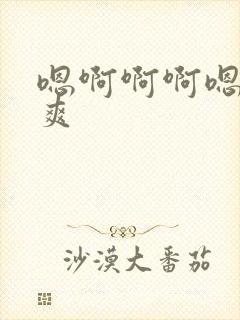 嗯啊啊啊嗯
爽
沙漠大番茄